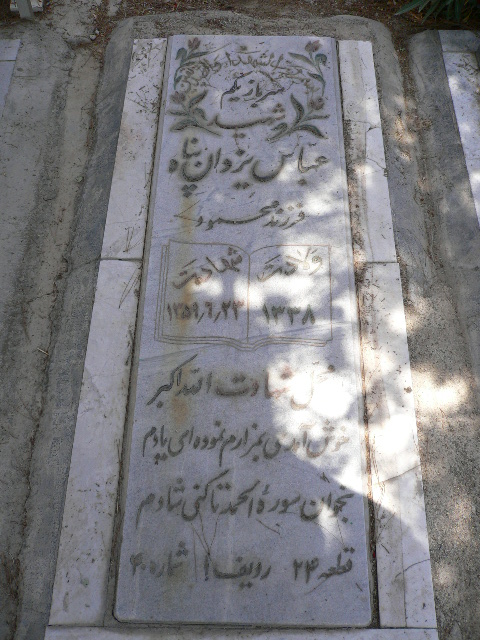 سرباز یکم
شهید
عباس یزدان پناه
فرزند محمود
ولادت شهادت
۱۳۳۸ ۱۳۵۹٫۶٫۲۳
شهادت الله اکبر
خوش آمدی بمزارم نموده ای یادم
بخوان سورۀ الحمد تا کنی شادم
قطعه ۲۴ ردیف ۱ شماره ۴۰